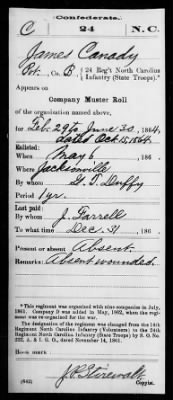 Confederate.
C 24 N.C.
James Canady
Pvt., Co. B, 24 Reg't North Carolina
Infantry (State Troops).*
Appears on
Company Muster Roll
of the organization named above,
for Feb. 29 to June 30, 1864.
dated Oct. 15, 1864.
Enlisted:
When May 6, 186 .
Where Jacksonville
By whom G. T. Duffy
Period 1 yr.
Last paid:
By whom J. Farrell
To what time Dec. 31, 186 .
Present or absent Absent.
Remarks: Absent wounded.
*This regiment was organized with nine companies in July,
1861. Company D was added in May, 1862, when the regi-
ment was re-organized for the war.
The designation of the regiment was changed from the 14th
Regiment North Carolina Infantry (Volunteers) to the 24th
Regiment North Carolina Infantry (State Troops) by S. O. No.
222, A. & I. G. O., dated November 14, 1861.
Book mark:
(642)
Copyist.